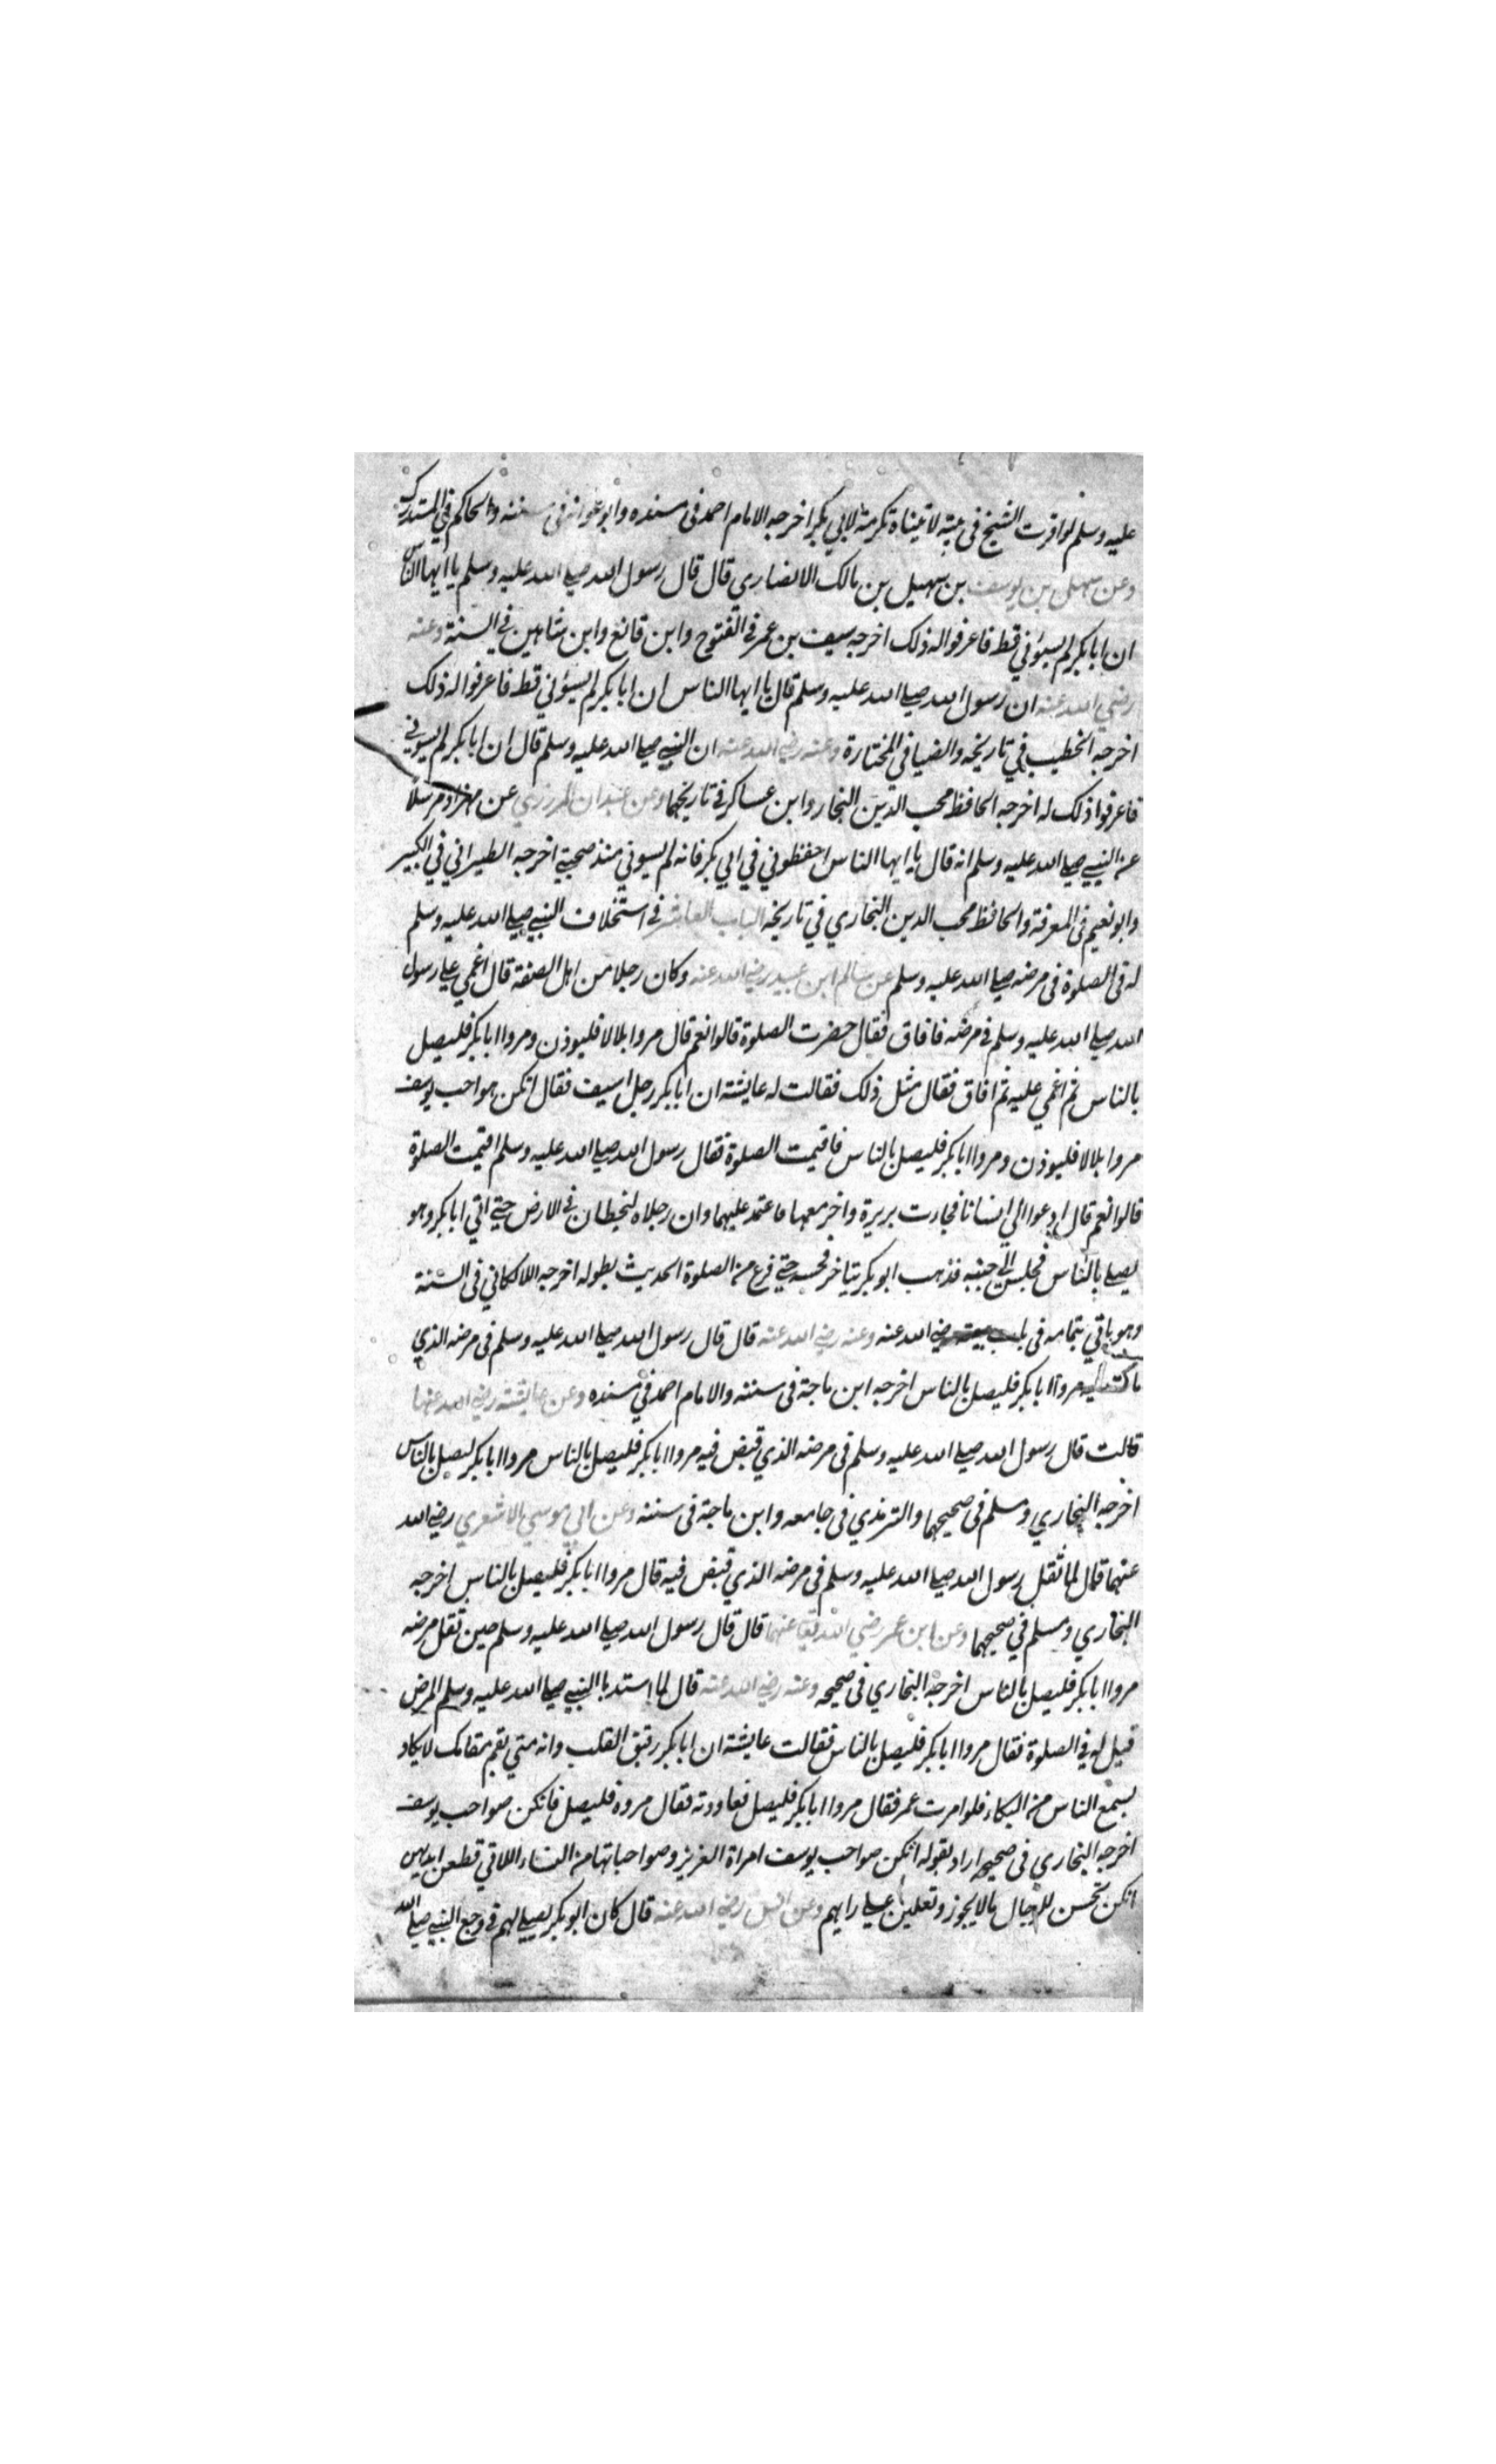 عليه وسلم لو اقررت الشيخ في بيته لاتيناه تكرمة لابي بكر اخرجه الامام احمد في مسنده وابو عوانة في سننه والحاكم في المستدرك
وعن سهل بن يوسف بن سهيل بن مالك الانصاري قال قال رسول الله صلى الله عليه وسلم يا ايها الناس
ان ابا بكر لم يسؤني قط فاعرفوا له ذلك اخرجه سيف بن عمر في الفتوح وابن قانع وابن شاهين في السنة وعنه
رضي الله عنه ان رسول الله صلى الله عليه وسلم قال يا ايها الناس ان ابا بكر لم يسؤني قط فاعرفوا له ذلك
اخرجه الخطيب في تاريخه والضيا في المختارة وعنه رضي الله عنه ان النبي صلى الله عليه وسلم قال ان ابا بكر لم يسوني
فاعرفوا ذلك له اخرجه الحافظ محب الدين النجار وابن عساكر في تاريخهما وعن عبدان المرزي عن بهزاد مرسلا
عن النبي صلى الله عليه وسلم انه قال يا ايها الناس احفظوني في ابي بكر فانه لم يسوني منذ صحبني اخرجه الطبراني في الكبير
وابو نعيم في المعرفة والحافظ محب الدين النجاري في تاريخه الباب العاشر في استخلاف النبي صلى الله عليه وسلم
له في الصلوة في مرضه صلى الله عليه وسلم عن سالم ابن عبيد رضي الله عنه وكان رجلا من اهل الصفة قال اغمي على رسول
الله صلى الله عليه وسلم في مرضه فافاق فقال حضرت الصلوة قالوا نعم قال مروا بلالا فليوذن ومروا ابا بكر فليصل
بالناس ثم اغمي عليه ثم افاق فقال مثل ذلك فقالت له عايشة ان ابا بكر رجل اسيف فقال انكن صواحب يوسف
مروا بلالا فليوذن ومروا ابا بكر فليصل بالناس فاقيمت الصلوة فقال رسول الله صلى الله عليه وسلم اقيمت الصلوة
قالوا نعم قال ادعوا الي انسانا فجاءت بريرة واخر معها فاعتمد عليهما وان رجلاه لتخطان في الارض حتى اتي ابا بكر وهو
يصلي بالناس فجلس الى جنبه فذهب ابو بكر يتاخر فحبسه حتى فرغ من الصلوة الحديث بطوله اخرجه اللالكائي في السنة
وهو ياتي بتمامه في باب بيعته رضي الله عنه وعنه رضي الله عنه قال قال رسول الله صلى الله عليه وسلم في مرضه الذي
مات فيه مروا ابا بكر فليصل بالناس اخرجه ابن ماجة في سننه والامام احمد في مسنده وعن عايشة رضي الله عنها
قالت قال رسول الله صلى الله عليه وسلم في مرضه الذي قبض فيه مروا ابا بكر فليصل بالناس مروا ابا بكر ليصل بالناس
اخرجه البخاري ومسلم في صحيحهما والترمذي في جامعه وابن ماجة في سننه وعن ابي موسي الاشعري رضي الله
عنهما قال لما ثقل رسول الله صلى الله عليه وسلم في مرضه الذي قبض فيه قال مروا ابا بكر فليصل بالناس اخرجه
البخاري ومسلم في صحيحهما وعن ابن عمر رضي الله تعا عنهما قال قال رسول الله صلى الله عليه وسلم حين ثقل مرضه
مروا ابا بكر فليصل بالناس اخرجه البخاري في صحيحه وعنه رضي الله عنه قال لما استد با النبي صلى الله عليه وسلم المرض
قيل له في الصلوة فقال مروا ابا بكر فليصل بالناس فقالت عايشة ان ابا بكر رقيق القلب وانه متى يقم مقامك لا يكاد
يسمع الناس من البكاء فلو امرت عمر فقال مروا ابا بكر فليصل فعاودته فقال مروه فليصل فانكن صواحب يوسف
اخرجه البخاري في صحيحه اراد بقوله انكن صواحب يوسف امراة العزيز وصواحباتها من النساء اللاتي قطعن ايديهن
انكن تحسن للرجال مالا يجوز وتعلين على رايهم وعن انس رضي الله عنه قال كان ابو بكر يصلي لهم في وجع النبي صلى الله